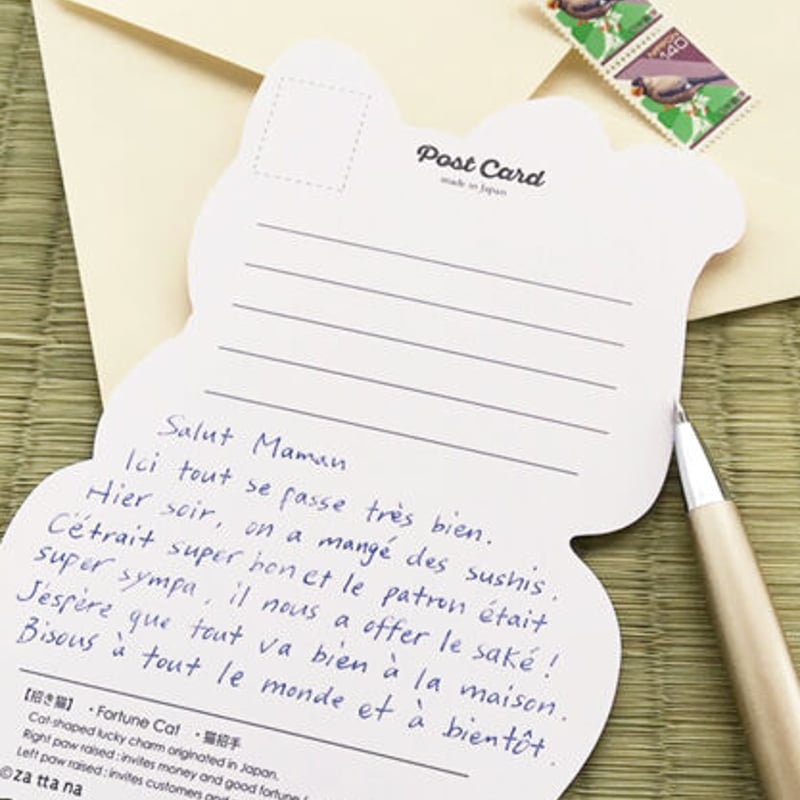 NIPPON
140
Post Card
made in Japan
Salut Maman
Ici tout se passe très bien.
Hier soir, on a mangé des sushis.
C'étrait super bon et le patron était
super sympa, il nous a offer le saké !
J'éspère que tout va bien à la maison.
Bisous à tout le monde et à bientôt.
【招き猫】 ・Fortune Cat ・猫招手
Cat-shaped lucky charm originated in Japan.
Right paw raised : invites money and good fortune
Left paw raised : invites customers and
©zattana